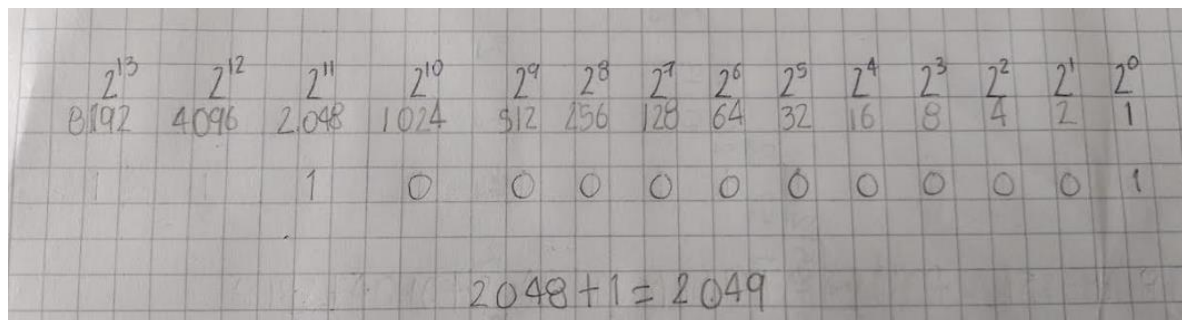 2¹³ 2¹² 2¹¹ 2¹⁰ 2⁹ 2⁸ 2⁷ 2⁶ 2⁵ 2⁴ 2³ 2² 2¹ 2⁰
8192 4096 2.048 1024 512 256 128 64 32 16 8 4 2 1
1 1 1 0 0 0 0 0 0 0 0 0 0 1
2048+1=2049